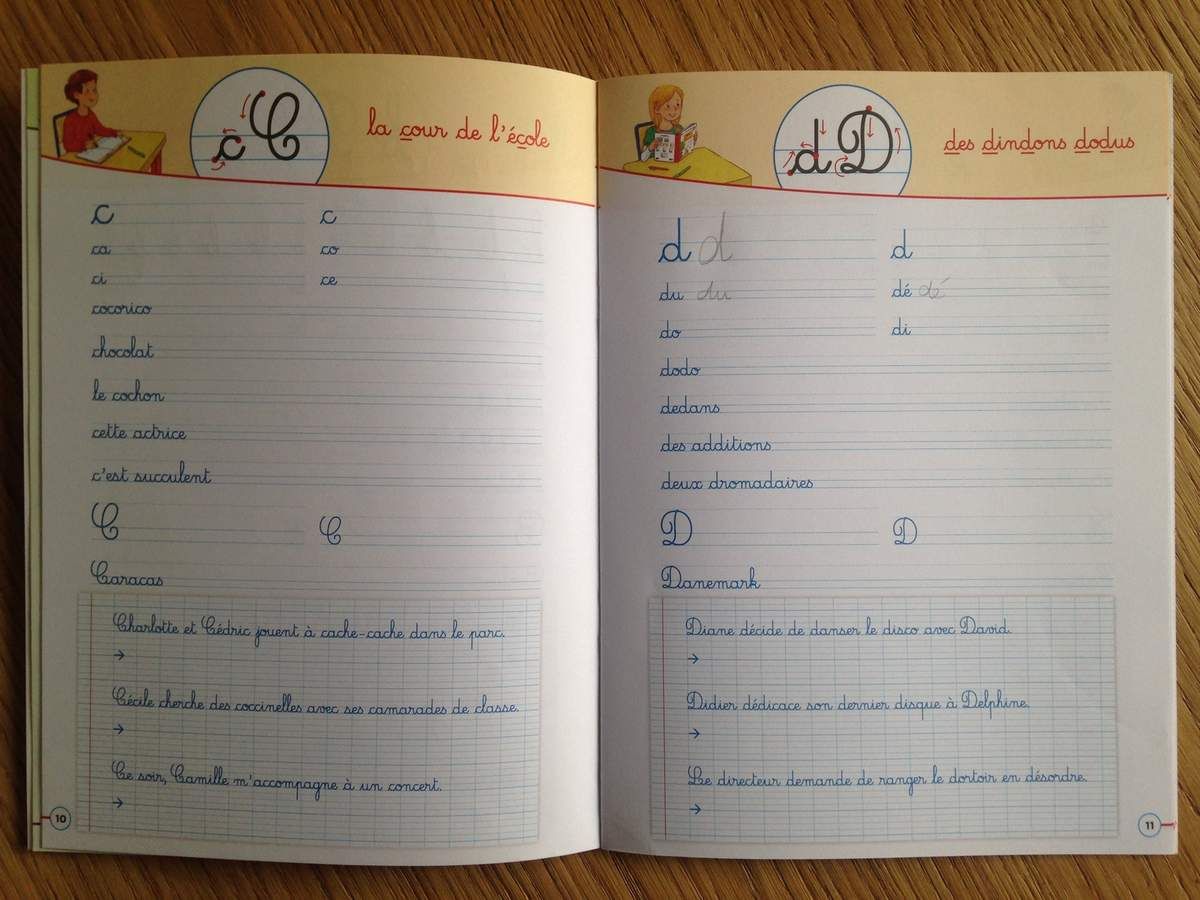 c C
la cour de l'école
c c
ca co
ci ce
cocorico
chocolat
le cochon
cette actrice
c'est succulent
C C
Caracas
Charlotte et Cédric jouent à cache-cache dans le parc.
→
Cécile cherche des coccinelles avec ses camarades de classe.
→
Ce soir, Camille m'accompagne à un concert.
→
10
d D
des dindons dodus
d d d
du du dé dé
do di
dodo
dedans
des additions
deux dromadaires
D D
Danemark
Diane décide de danser le disco avec David.
→
Didier dédicace son dernier disque à Delphine.
→
Le directeur demande de ranger le dortoir en désordre.
→
11